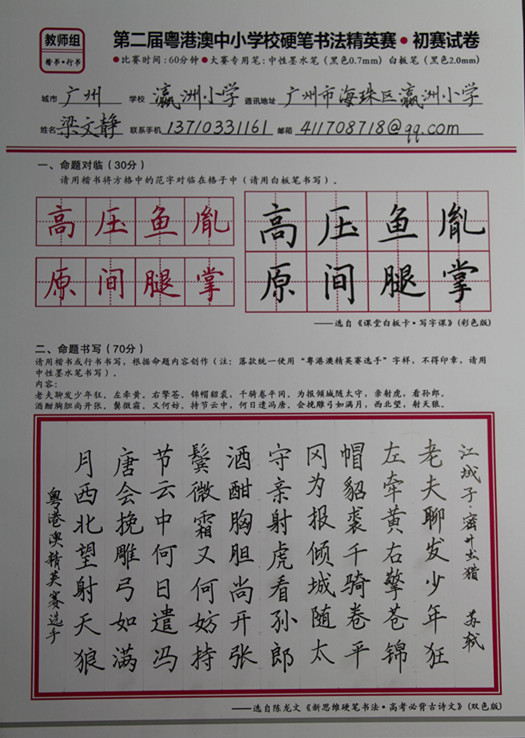 教师组
楷书·行书
第二届粤港澳中小学校硬笔书法精英赛·初赛试卷
●比赛时间:60分钟●大赛专用笔:中性墨水笔(黑色0.7mm)白板笔(黑色2.0mm)
城市 广州 学校 瀛洲小学 通讯地址 广州市海珠区瀛洲小学
姓名 梁文静 联系手机 13710331161 邮箱 411708718@qq.com
一、命题对临(30分)
请用楷书将方格中的范字对临在格子中(请用白板笔书写)。
高压鱼胤
原间腿掌
高压鱼胤
原间腿掌
——选自《课堂白板卡·写字课》(彩色版)
二、命题书写(70分)
请用楷书或行书书写,根据命题内容创作(注:落款统一使用“粤港澳精英赛选手”字样,不得印章,请用
中性墨水笔书写)。
内容:
老夫聊发少年狂,左牵黄,右擎苍,锦帽貂裘,千骑卷平冈。为报倾城随太守,亲射虎,看孙郎。
酒酣胸胆尚开张,鬓微霜,又何妨。持节云中,何日遣冯唐。会挽雕弓如满月,西北望,射天狼。
江城子·密州出猎 苏轼
老夫聊发少年狂
左牵黄右擎苍锦
帽貂裘千骑卷平
冈为报倾城随太
守亲射虎看孙郎
酒酣胸胆尚开张
鬓微霜又何妨持
节云中何日遣冯
唐会挽雕弓如满
月西北望射天狼
粤港澳精英赛选手
——选自陈龙文《新思维硬笔书法·高考必背古诗文》(双色版)